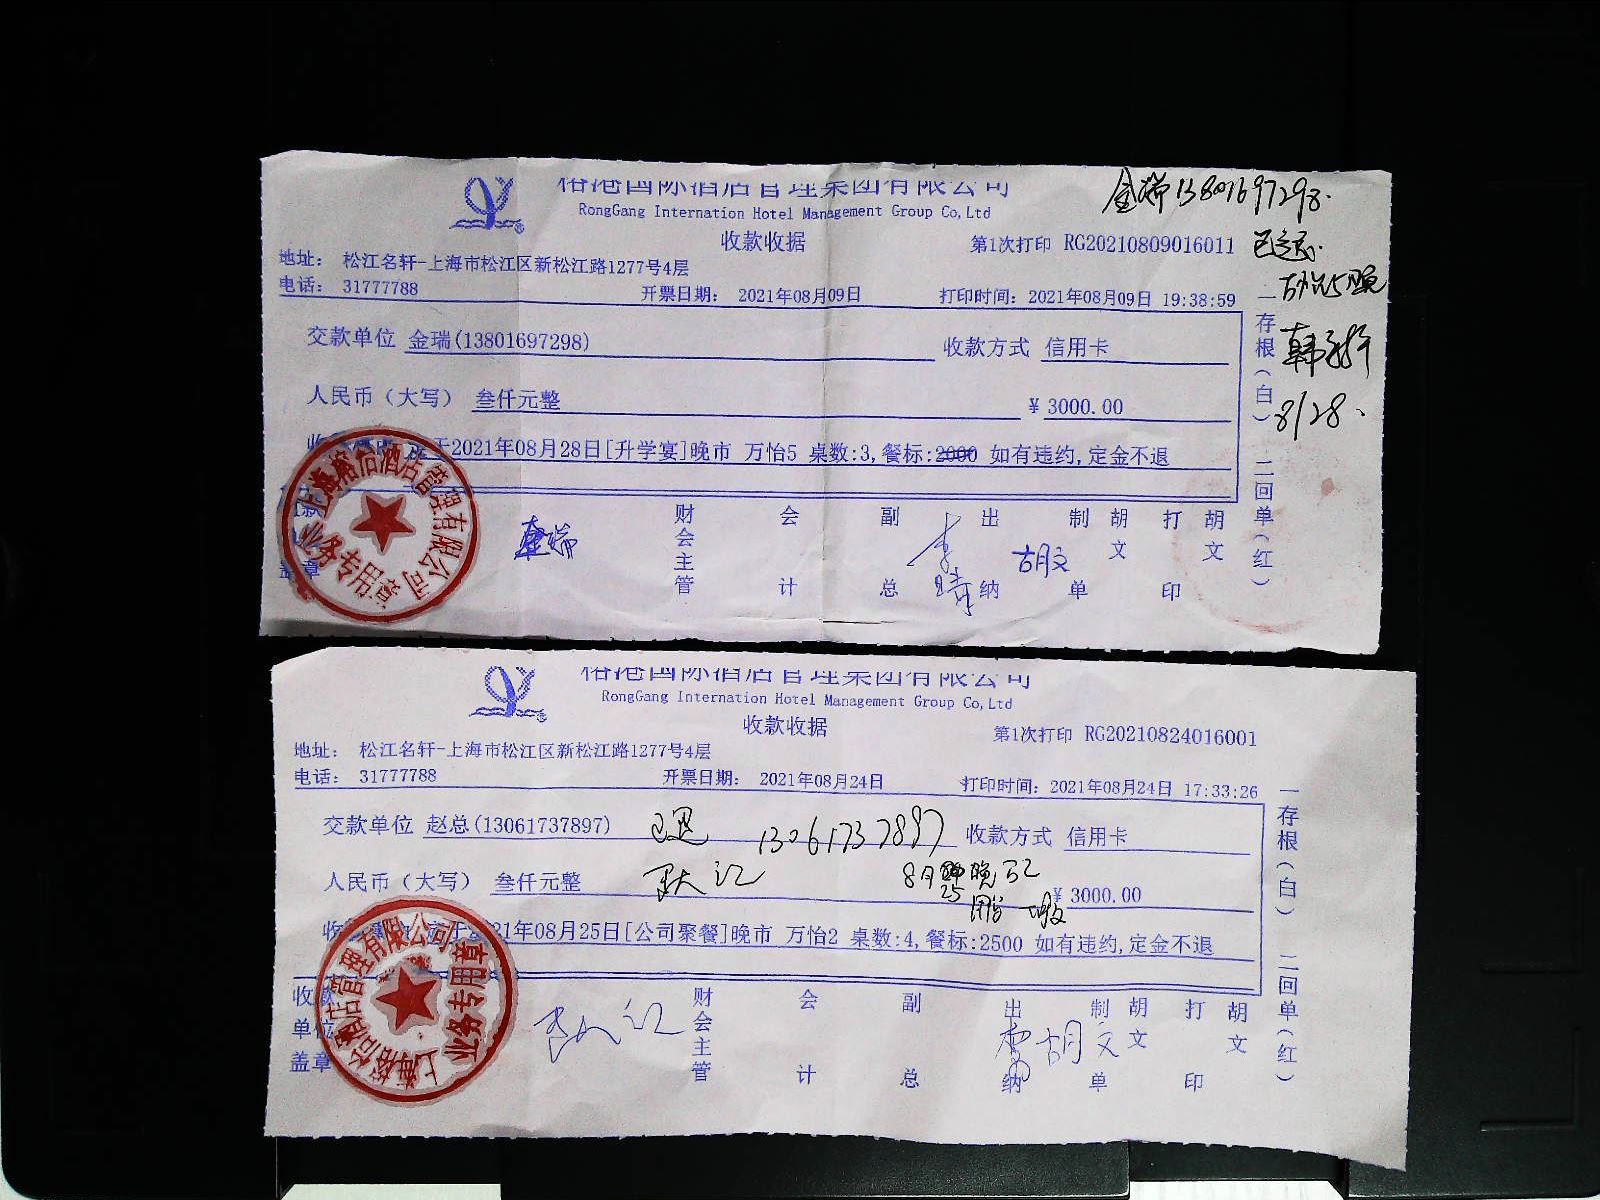 榕港国际酒店管理集团有限公司
RongGang Internation Hotel Management Group Co,Ltd
金瑞13801697298.
收款收据
第1次打印 RG20210809016011
地址: 松江名轩-上海市松江区新松江路1277号4层
电话: 31777788
开票日期: 2021年08月09日
打印时间: 2021年08月09日 19:38:59
交款单位 金瑞(13801697298)
收款方式 信用卡
人民币（大写） 叁仟元整
¥ 3000.00
2021年08月28日[升学宴]晚市 万怡5 桌数:3,餐标:2000 如有违约,定金不退
一存根(白) 二回单(红)
8/28.
盖章
金瑞
财会主管
会计
副总
出纳
李
制单
胡文
胡文
打印
胡文
业务专用章
榕港国际酒店管理集团有限公司
RongGang Internation Hotel Management Group Co,Ltd
收款收据
第1次打印 RG20210824016001
地址: 松江名轩-上海市松江区新松江路1277号4层
电话: 31777788
开票日期: 2021年08月24日
打印时间: 2021年08月24日 17:33:26
交款单位 赵总(13061737897)
已退 13061737897
收款方式 信用卡
人民币（大写） 叁仟元整
8月 25 晚
¥ 3000.00
2021年08月25日[公司聚餐]晚市 万怡2 桌数:4,餐标:2500 如有违约,定金不退
一存根(白) 二回单(红)
收款单位盖章
财会主管
会计
副总
出纳
制单
胡文
胡文
打印
胡文
业务专用章